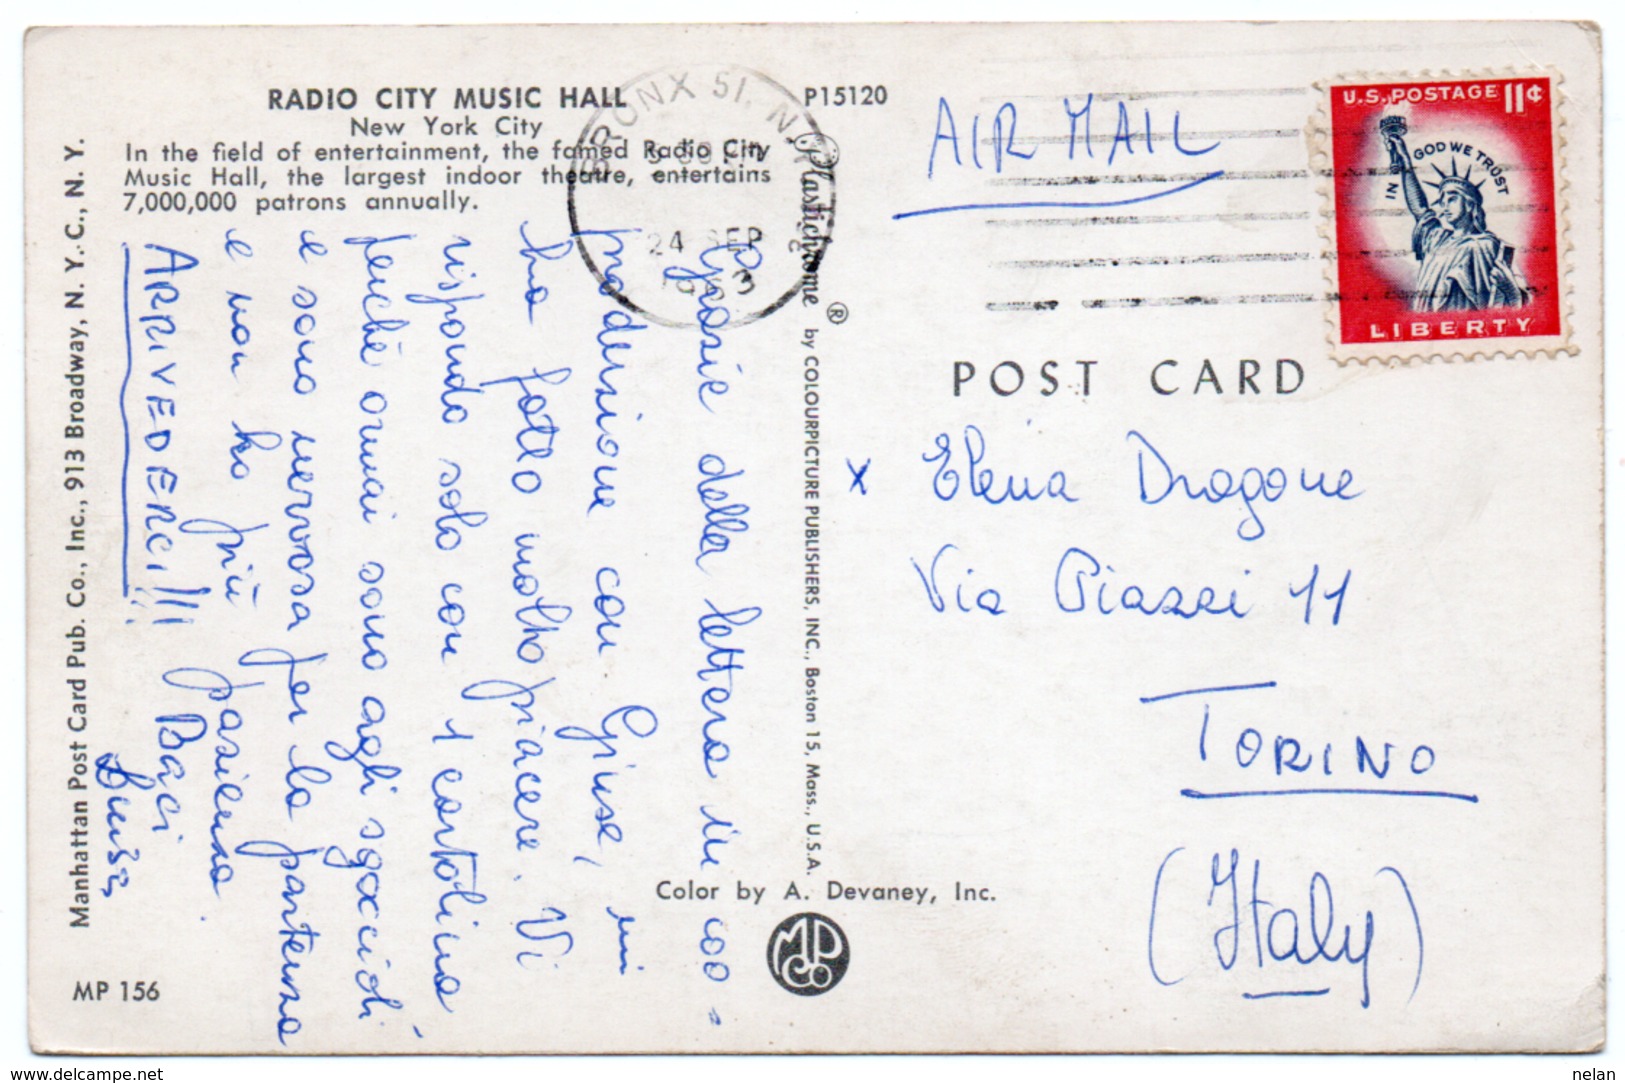 RADIO CITY MUSIC HALL
New York City
In the field of entertainment, the famed Radio City
Music Hall, the largest indoor theatre, entertains
7,000,000 patrons annually.
P15120
Manhattan Post Card Pub. Co., Inc., 913 Broadway, N. Y. C., N. Y.
MP 156
Grazie della lettera in coo=
produzione con Giuse, mi
ha fatto molto piacere. Vi
rispondo solo con 1 cartolina
perché ormai sono agli sgoccioli
e sono nervosa per la partenza
e non ho più pazienza.
ARRIVEDERCI!!! Baci
Luisa
Plastichrome ® by COLOURPICTURE PUBLISHERS, INC., Boston 15, Mass., U.S.A.
Color by A. Devaney, Inc.
MP Co
BRONX 51, N.Y.
24 SEP
AIR MAIL
U.S. POSTAGE 11¢
IN GOD WE TRUST
LIBERTY
POST CARD
x Elena Dragone
Via Piazzi 11
TORINO
(Italy)
www.delcampe.net
nelan